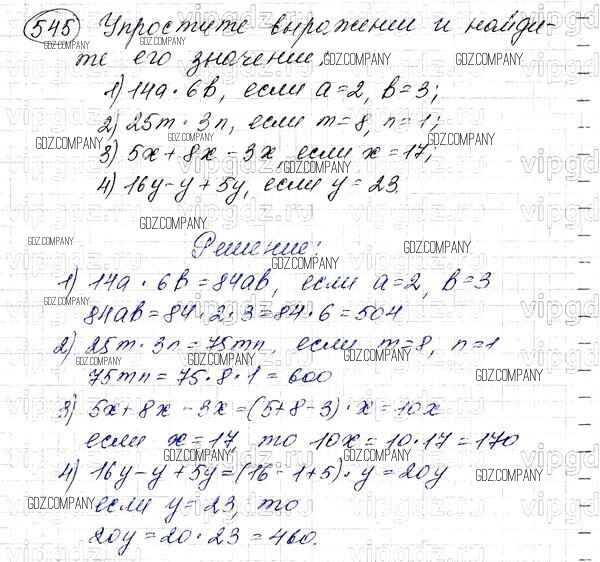 545 Упростите выражении и найди-
те его значении:
1) 14a · 6b, если a=2, b=3;
2) 25m · 3n, если m=8, n=1;
3) 5x+8x-3x, если x=17;
4) 16y-y+5y, если y=23.
Решение:
1) 14a · 6b = 84ab, если a=2, b=3
84ab = 84 · 2 · 3 = 84 · 6 = 504
2) 25m · 3n = 75mn, если m=8, n=1
75mn = 75 · 8 · 1 = 600
3) 5x+8x-3x=(5+8-3) · x = 10x
если x=17, то 10x = 10 · 17 = 170
4) 16y-y+5y=(16-1+5) · y = 20y
если y = 23, то
20y = 20 · 23 = 460.
GDZ.COMPANY
vipgdz.ru